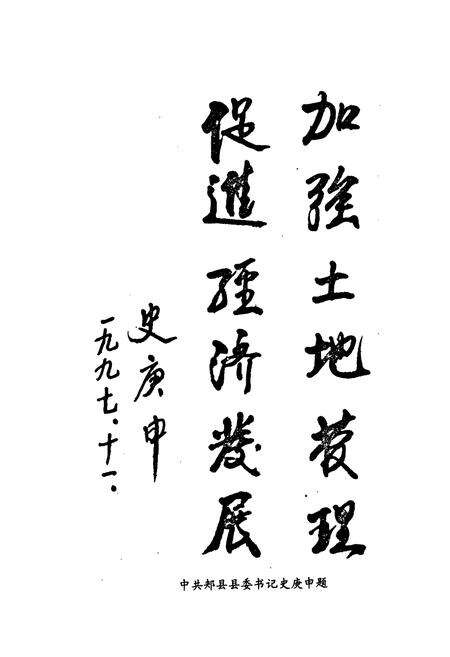 加强土地管理
促進經济發展
史庚申
一九九七、十一、
中共郏县县委书记史庚申题